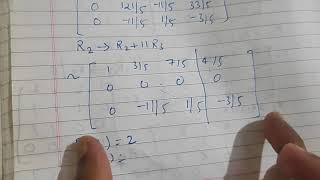 0 121/5 -11/5 33/5
0 -11/5 1/5 -3/5
R₂ → R₂ + 11R₃
~ [ 1 3/5 7/5 | 4/5
0 0 0 | 0
0 -11/5 1/5 | -3/5 ]
) = 2
) =